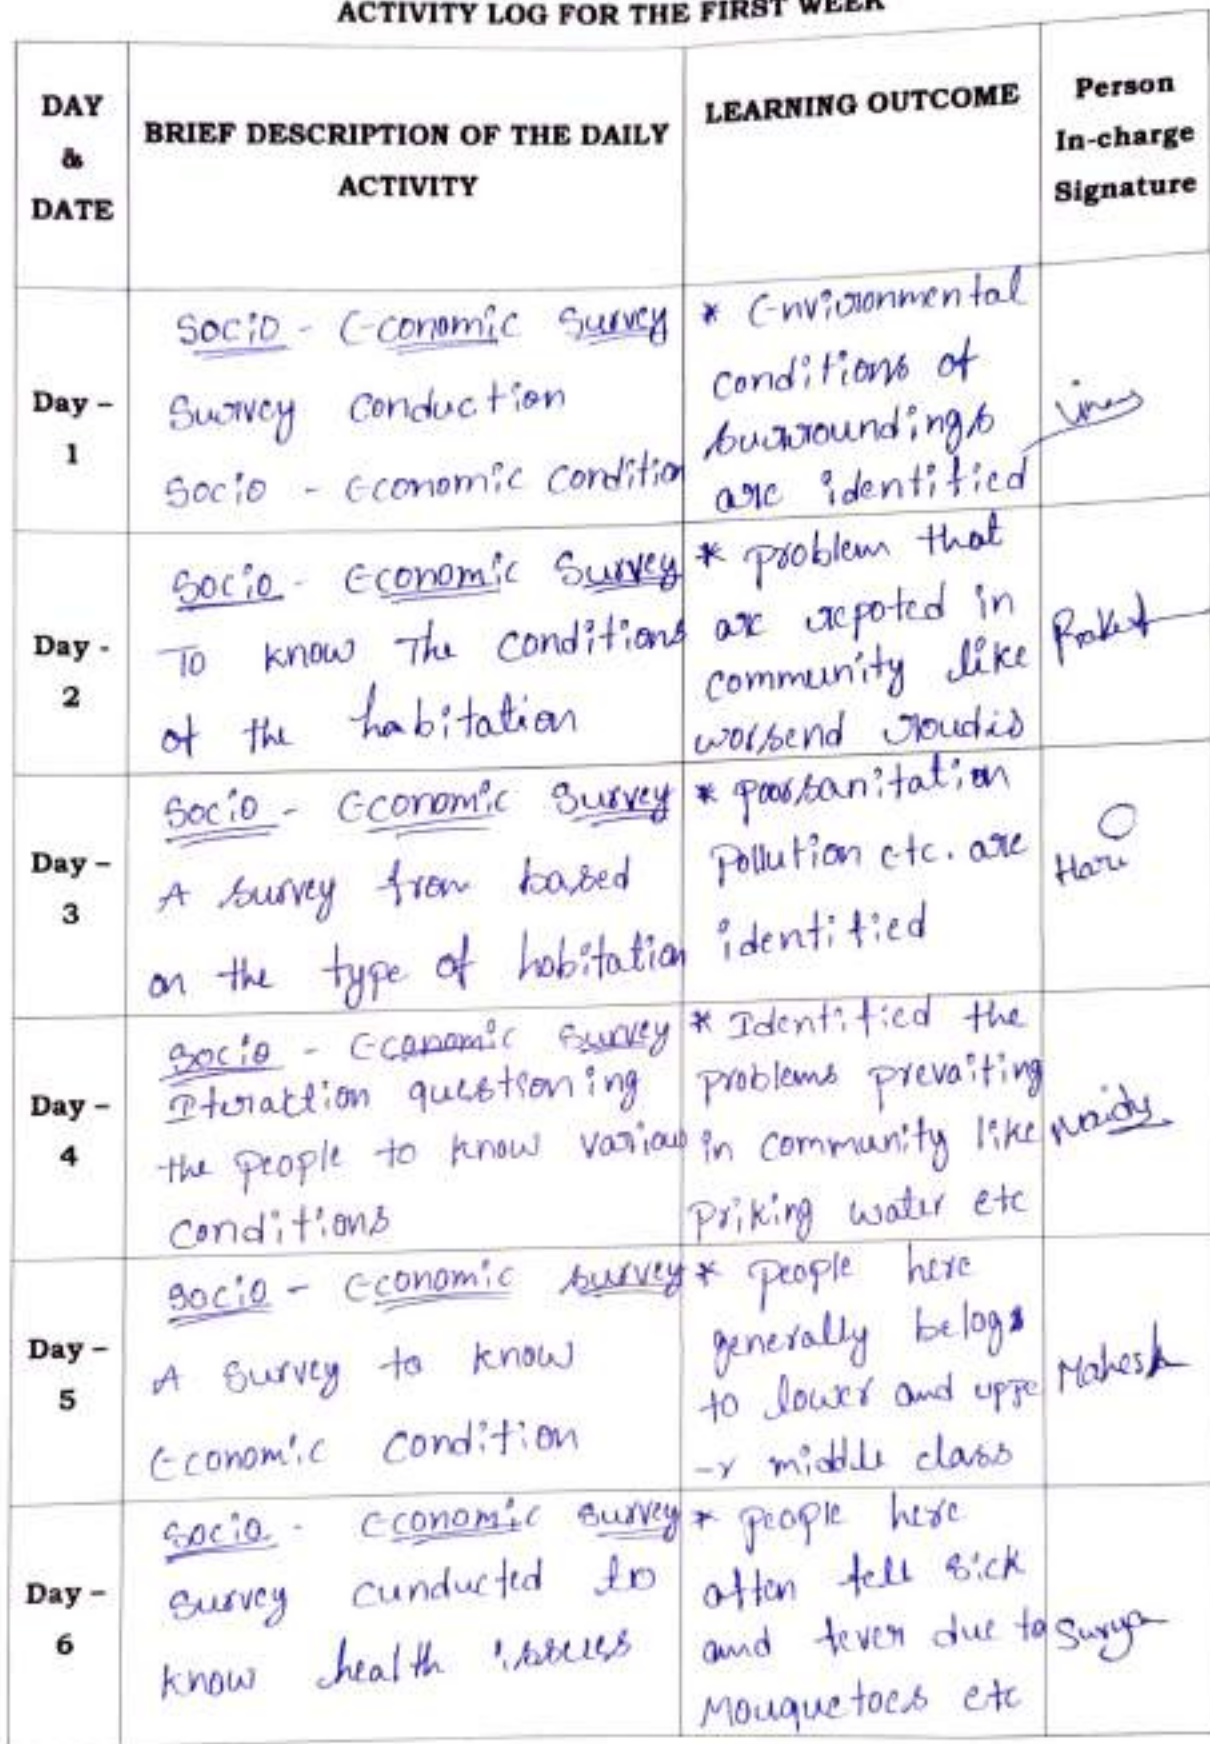 ACTIVITY LOG FOR THE FIRST WEEK
DAY
&
DATE
BRIEF DESCRIPTION OF THE DAILY
ACTIVITY
LEARNING OUTCOME
Person
In-charge
Signature
Day –
1
Socio - Economic Survey
Survey conduction
Socio - Economic condition
* Environmental
conditions of
surroundings
are identified
Day -
2
Socio - Economic Survey
To know The conditions
of the habitation
* problem that
are repoted in
community like
worsend
Day –
3
Socio - Economic Survey
A survey from based
on the type of habitation
* poorsanitation
Pollution etc. are
identified
Hari
Day –
4
Socio - Economic Survey
Iteraction questioning
the people to know various
conditions
* Identified the
problems prevaiting
in community like
Priking water etc
Naidu
Day –
5
Socio - Economic survey
A survey to know
Economic condition
* people here
generally belogs
to lower and uppe
-r middle class
Mahesh
Day –
6
Socio - Economic survey
survey cunducted to
know health issues
* people here
often fell sick
and fever due to
Mouquetoes etc
Surya